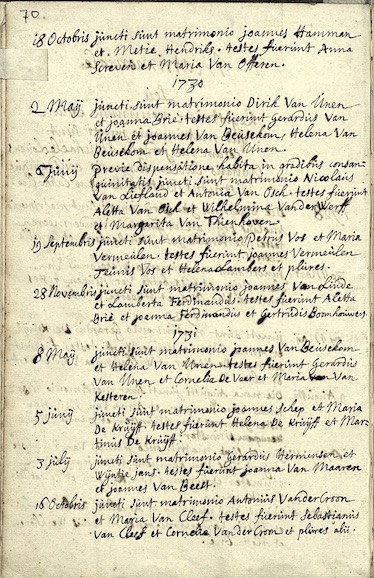 70.
18 Octobris juncti sunt matrimonio joannes Hamman
et Metie Hendriks. testes fuerunt Anna
Screven et Maria Van Offeren.
1730
2 Maij juncti sunt matrimonio Dirik Van Unen
et joanna Brie testes fuerunt Gerardus Van
Unen et joannes Van Beusekom, Helena Van
Beusekom et Helena Van Unen.
6 junij Previe dispensatione habita in gradibus consan-
guinitatis juncti sunt matrimonio Nicolaus
Van Liefland et Antonia Van Osch testes fuerunt
Aletta Van Osch et Wilhelmina VanderWerff
et Margarita Van Thienhoven
19 Septembris juncti sunt matrimonio Petrus Vos et Maria
Vermeulen. testes fuerunt joannes Vermeulen
Teunis Vos et Helena Lambers et plures.
28 Novembris juncti sunt matrimonio joannes Van Linde
et Lamberta Ferdinandus. testes fuerunt Aletta
Brie et joanna Ferdinandis et Gertridis Bomhouwers.
1731
8 Maij juncti sunt matrimonio joannes Van Beusekom
et Helena Van Unen testes fuerunt Gerardus
Van Unen et Cornelia De Voer et Maria Van
Kesteren.
5 junij juncti sunt matrimonio joannes Schep et Maria
De Kruijff. testes fuerunt Helena De Kruijff et Mar-
tinus De Kruijff.
3 julij juncti sunt matrimonio Gerardus Hermensen et
Wijntie jans. testes fuerunt joanna Van Maaren
et joannes Van Beest.
16 Octobris juncti sunt matrimonio Antonius VanderCroon
et Maria Van Cleef. testes fuerunt Sebastianus
Van Cleef et Cornelia VanderCroon et plures alii.